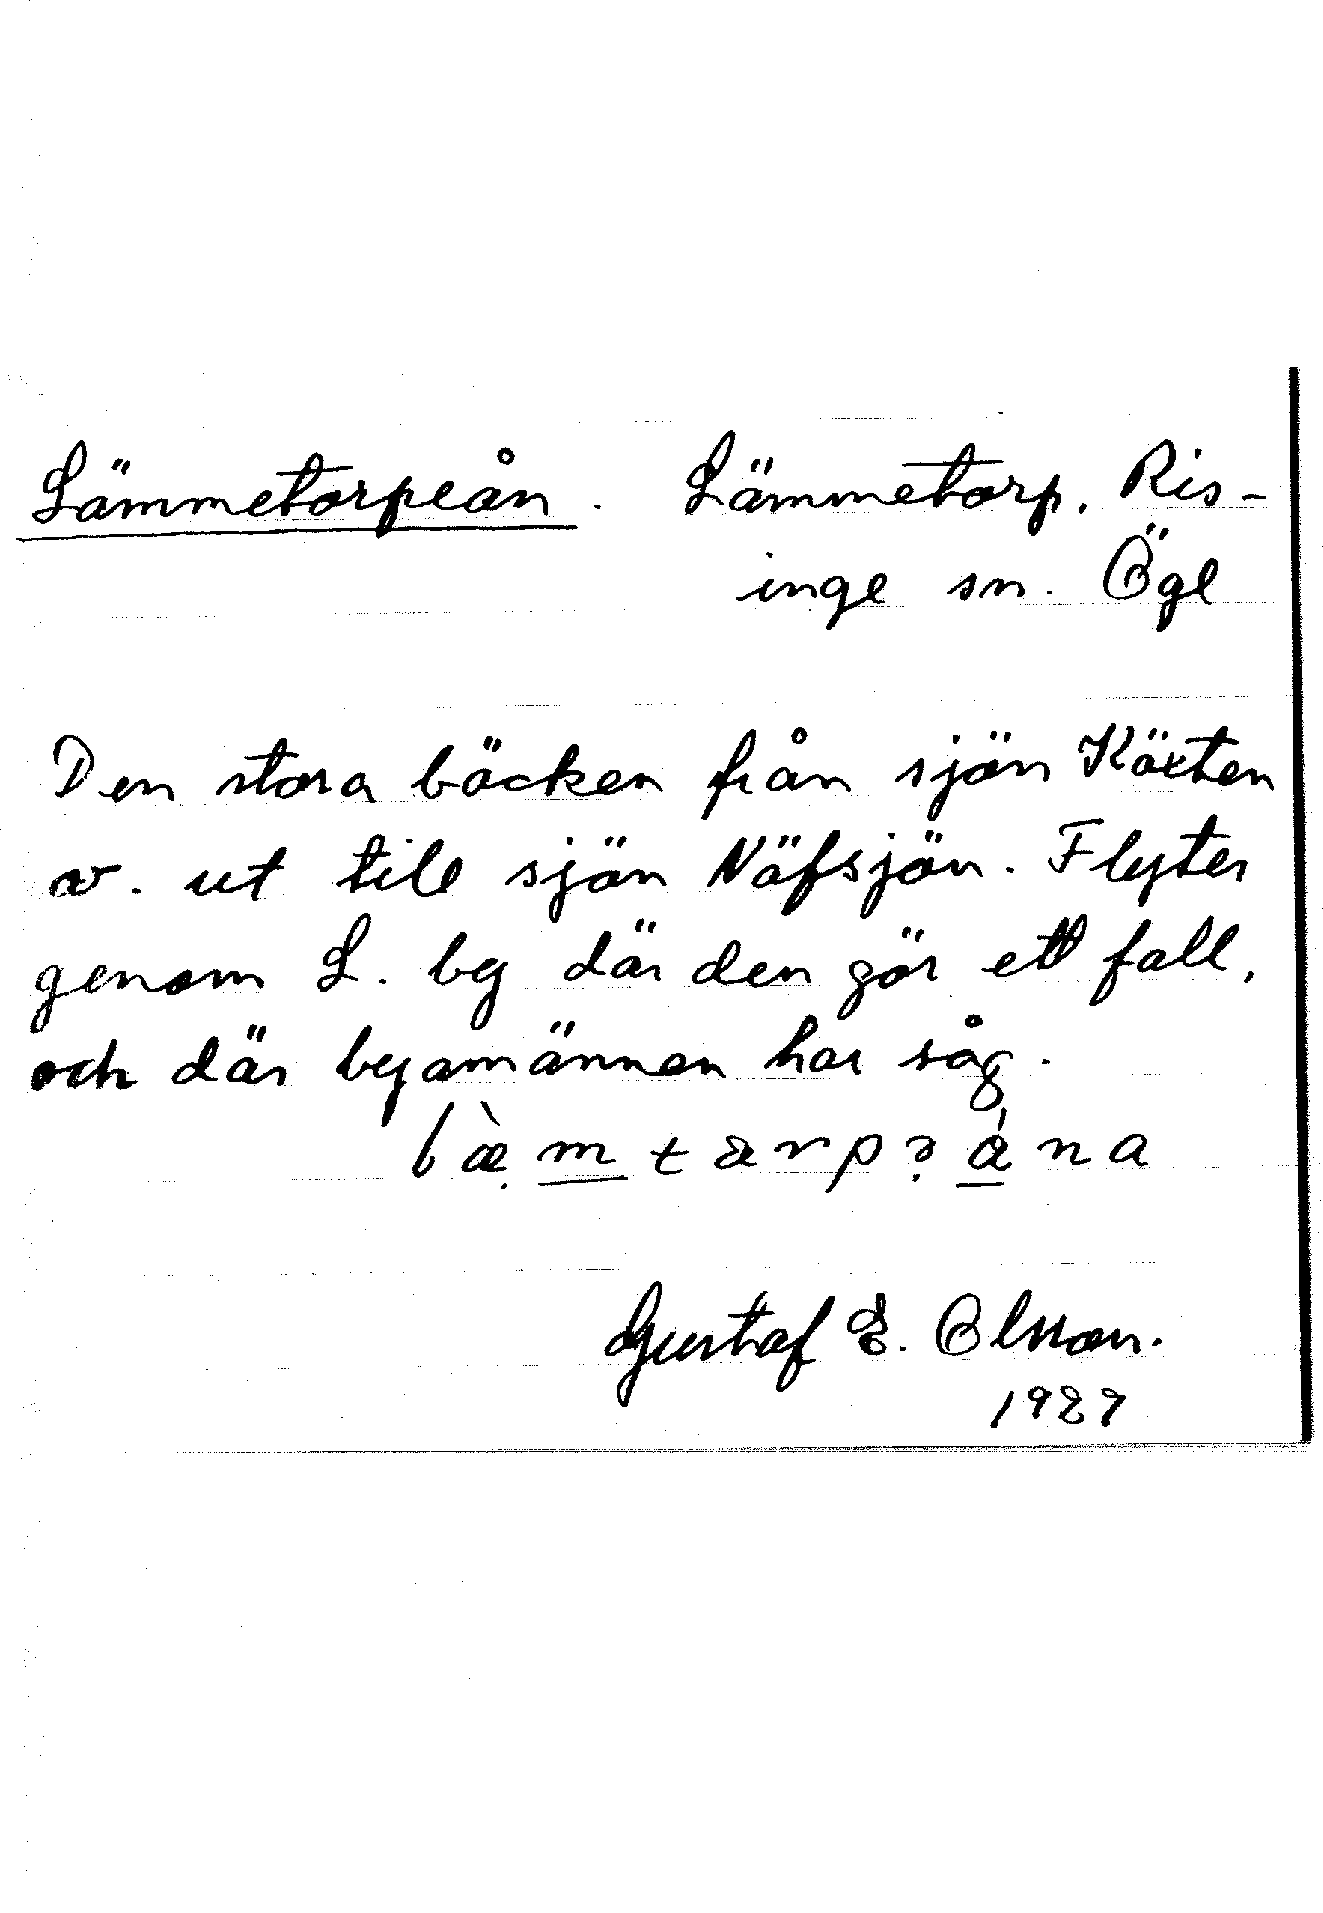 Lämmetorpeån. Lämmetorp. Ris-
inge sn. Ögl
Den stora bäcken från sjön Köxten
av. ut till sjön Näfsjön. Flyter
genom L. by där den gör ett fall,
och där byamännen har såg.
Gustaf E. Olsson.
1929